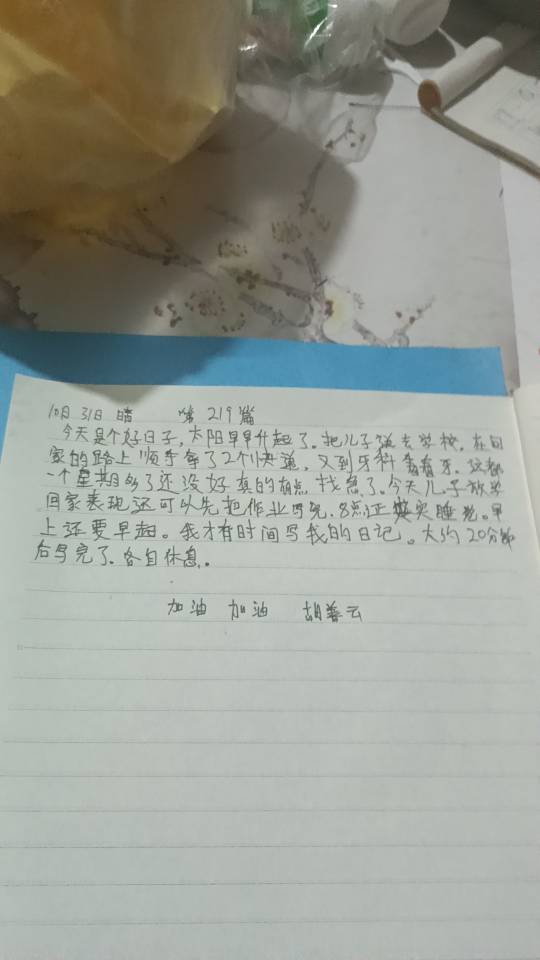 10月31日 晴 第219篇
今天是个好日子,太阳早早升起了。把儿子送去学校。在回
家的路上顺手拿了2个快递,又到牙科看看牙。这都
一个星期多了还没好真的有点找急了。今天儿子放学
回家表现还可以先把作业写完,8点正实睡觉。早
上还要早起。我才有时间写我的日记。大约20分钟
后写完了.各自休息.
加油 加油 胡善云